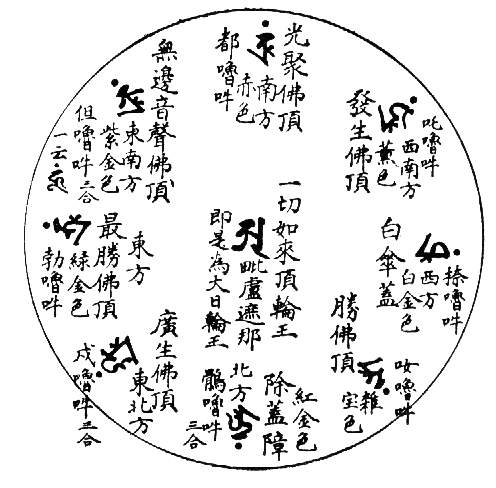 光聚佛頂
南方
赤色
都嚕吽
吒嚕吽
西南方
薰色
發生佛頂
無邊音聲佛頂
東南方
紫金色
但嚕吽三合
一云
一切如來頂輪王
毗盧遮那
即是為大日輪王
白傘蓋
西方
白金色
捺嚕吽
東方
最勝佛頂
綠金色
勃嚕吽
勝佛頂
雜
宝色
嚕吽
廣生佛頂
東北方
嚕吽三合
紅金色
除蓋障
北方
嚕吽
三合